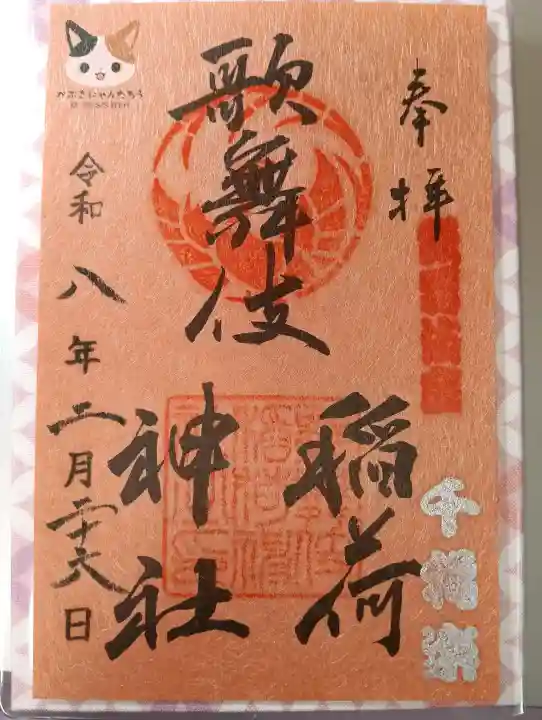 奉拝
千穐樂
歌舞伎
稲荷
神社
令和八年二月二十六日
かぶきにゃんたろう